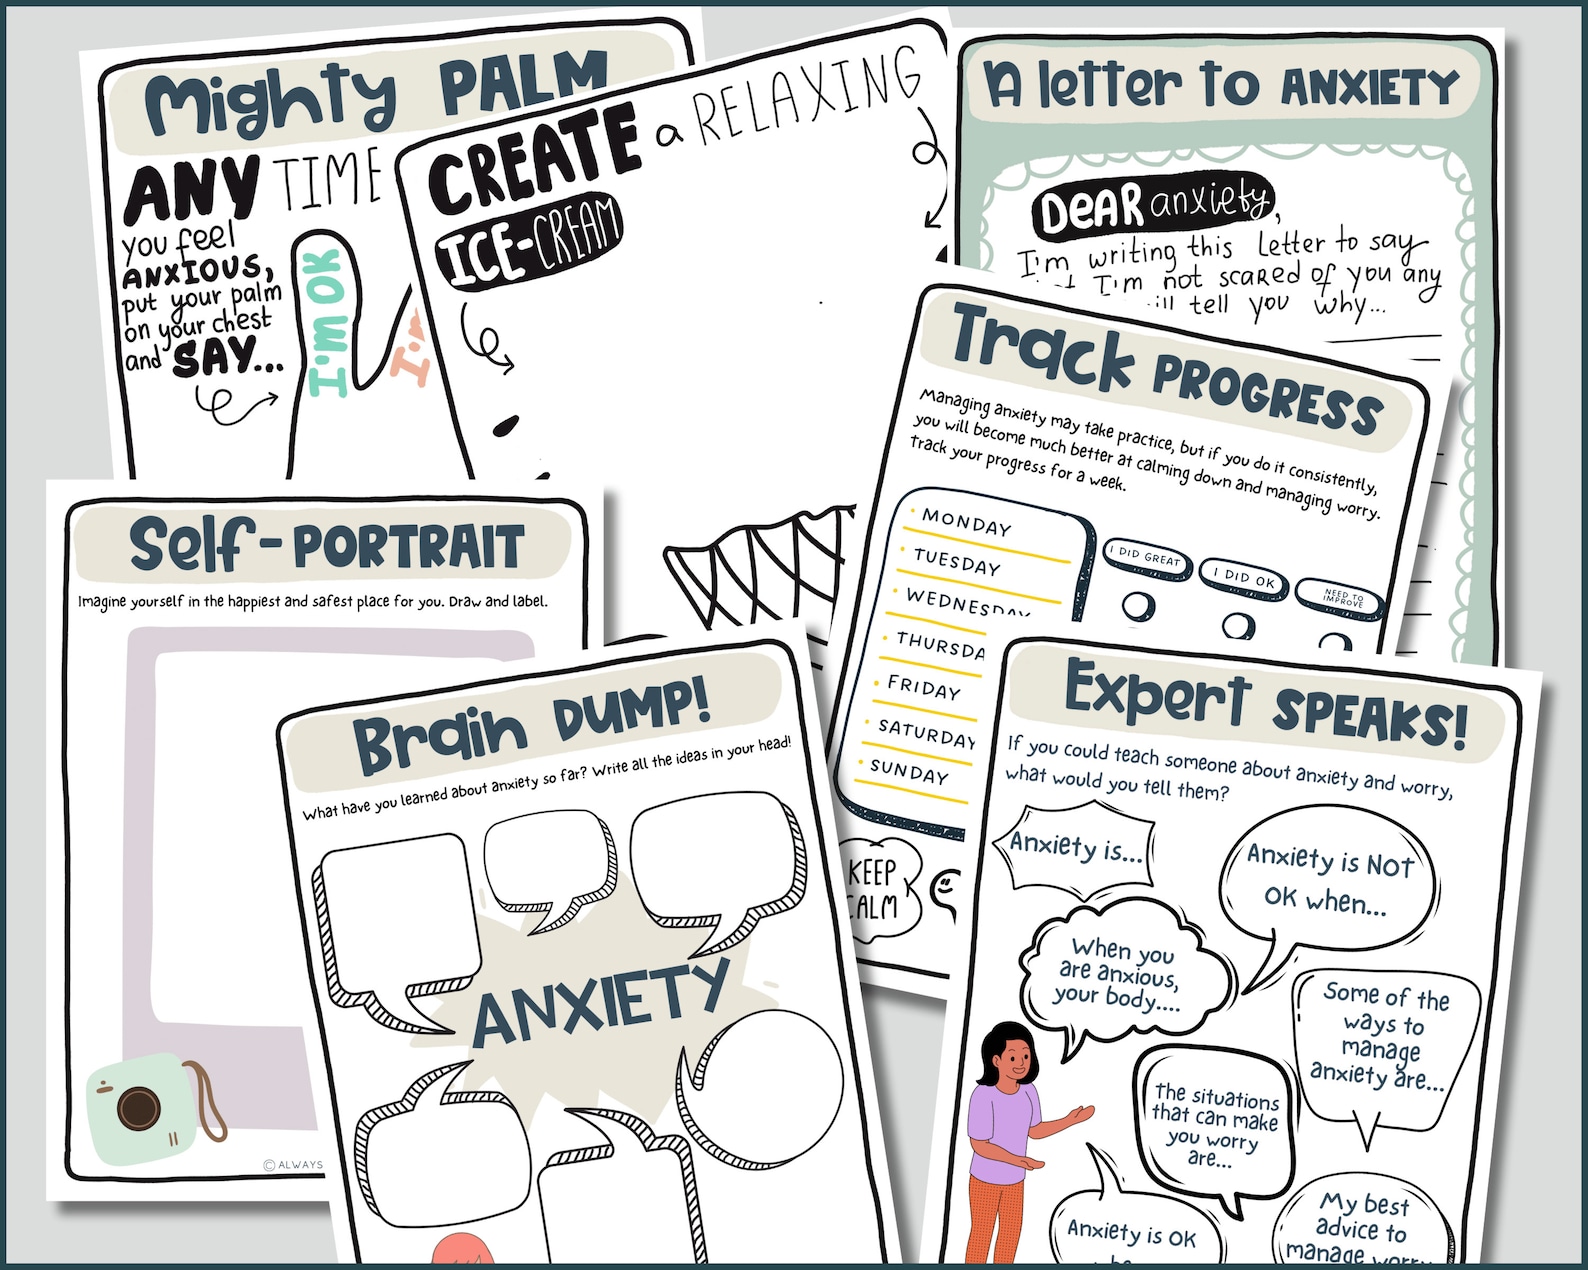 Mighty PALM
ANY TIME
you feel
ANXIOUS,
put your palm
on your chest
and SAY...
I'm OK
I'm
CREATE a RELAXING
ICE-CREAM
A letter to ANXIETY
DEAR anxiety,
I'm writing this letter to say
I'm not scared of you any
tell you why...
Track PROGRESS
Managing anxiety may take practice, but if you do it consistently,
you will become much better at calming down and managing worry.
Track your progress for a week.
MONDAY
TUESDAY
WEDNESDAY
THURSDA
FRIDAY
SATURDAY
SUNDAY
I DID GREAT
I DID OK
NEED TO
IMPROVE
KEEP
CALM
Self-PORTRAIT
Imagine yourself in the happiest and safest place for you. Draw and label.
© ALWAYS
Brain DUMP!
What have you learned about anxiety so far? Write all the ideas in your head!
ANXIETY
Expert SPEAKS!
If you could teach someone about anxiety and worry,
what would you tell them?
Anxiety is...
Anxiety is NOT
OK when...
When you
are anxious,
your body....
Some of the
ways to
manage
anxiety are...
The situations
that can make
you worry
are...
Anxiety is OK
My best
advice to
manage worry